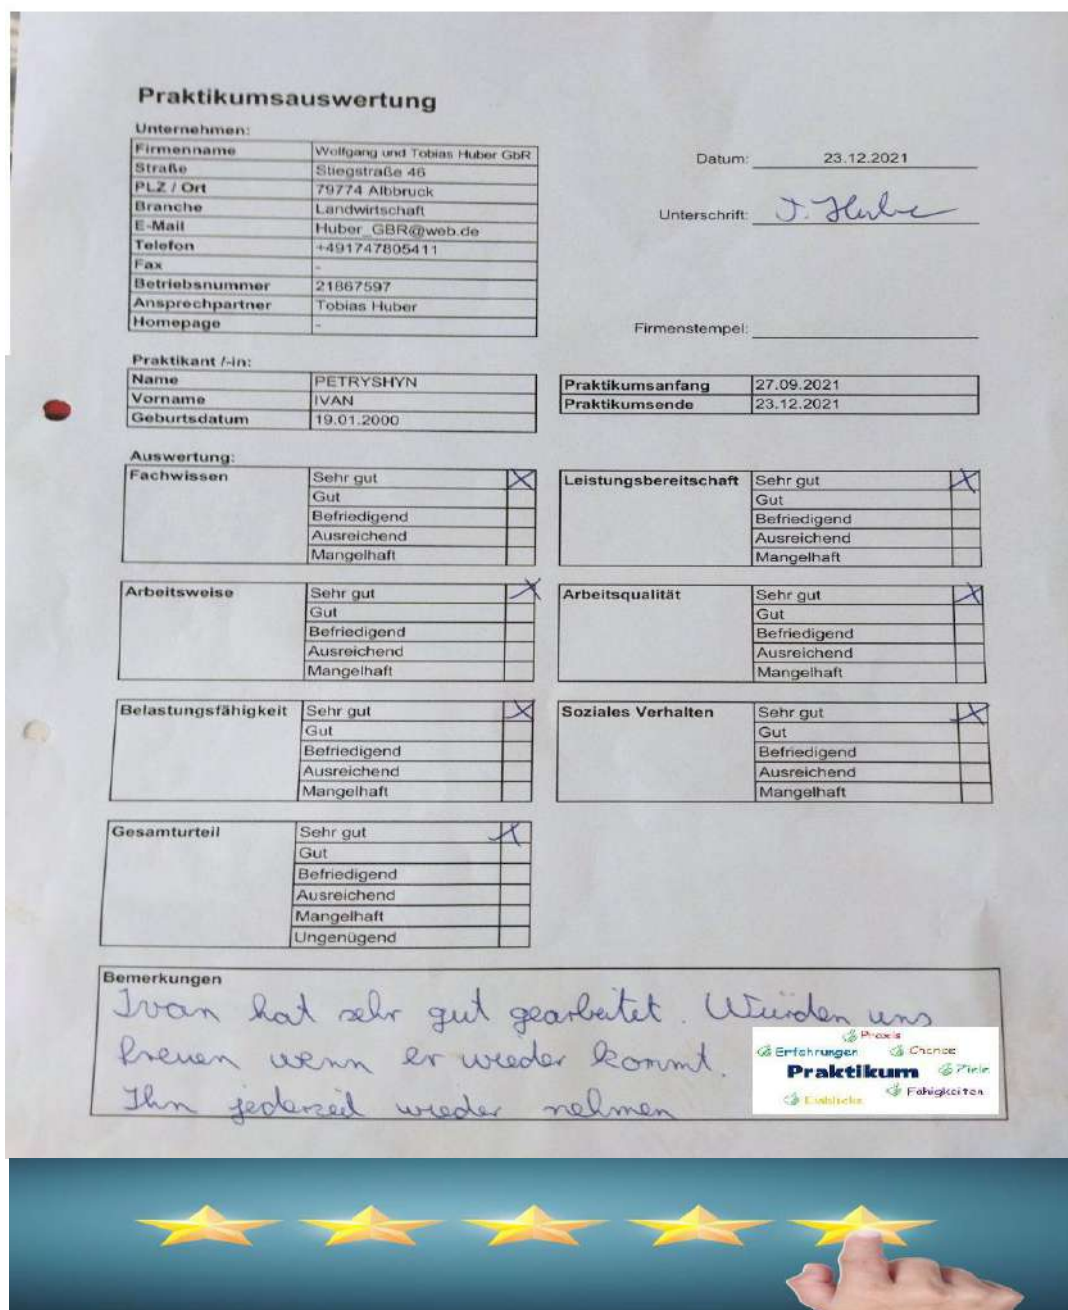 Praktikumsauswertung
Unternehmen:
Firmenname Wolfgang und Tobias Huber GbR
Straße Stiegstraße 46
PLZ / Ort 79774 Albbruck
Branche Landwirtschaft
E-Mail Huber_GBR@web.de
Telefon +491747805411
Fax -
Betriebsnummer 21867597
Ansprechpartner Tobias Huber
Homepage -
Datum: 23.12.2021
Unterschrift: T. Huber
Firmenstempel:
Praktikant /-in:
Name PETRYSHYN
Vorname IVAN
Geburtsdatum 19.01.2000
Praktikumsanfang 27.09.2021
Praktikumsende 23.12.2021
Auswertung:
Fachwissen Sehr gut X
Gut
Befriedigend
Ausreichend
Mangelhaft
Leistungsbereitschaft Sehr gut X
Gut
Befriedigend
Ausreichend
Mangelhaft
Arbeitsweise Sehr gut X
Gut
Befriedigend
Ausreichend
Mangelhaft
Arbeitsqualität Sehr gut X
Gut
Befriedigend
Ausreichend
Mangelhaft
Belastungsfähigkeit Sehr gut X
Gut
Befriedigend
Ausreichend
Mangelhaft
Soziales Verhalten Sehr gut X
Gut
Befriedigend
Ausreichend
Mangelhaft
Gesamturteil Sehr gut X
Gut
Befriedigend
Ausreichend
Mangelhaft
Ungenügend
Bemerkungen
Ivan hat sehr gut gearbeitet. Würden uns
freuen wenn er wieder kommt.
Ihn jederzeit wieder nehmen
Praxis
Erfahrungen Chance
Praktikum Ziele
Fähigkeiten
Einblicke